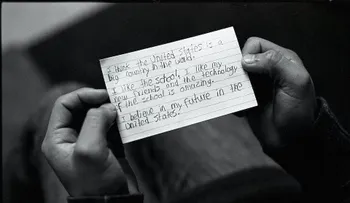 I think the United States is a
big country in the world.
I like the school, I like my
new friends and the technology
of the school is amazing.
I believe in my future in the
United States.